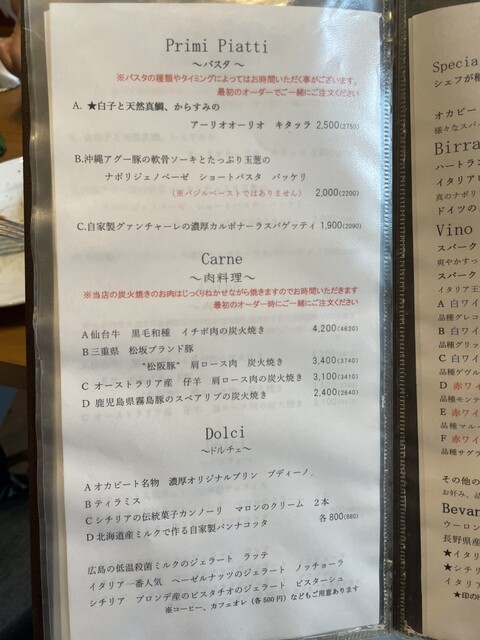 Primi Piatti
～パスタ～
※パスタの種類やタイミングによってはお時間いただく事がございます。
最初のオーダーでご一緒にご注文ください
A. ★白子と天然真鯛、からすみの
アーリオオーリオ キタッラ 2,500(2750)
B.沖縄アグー豚の軟骨ソーキとたっぷり玉葱の
ナポリジェノベーゼ ショートパスタ パッケリ
(※バジルペーストではありません) 2,000(2200)
C.自家製グァンチャーレの濃厚カルボナーラスパゲッティ 1,900(2090)
Carne
～肉料理～
※当店の炭火焼きのお肉はじっくりねかせながら焼きますのでお時間いただきます
最初のオーダー時にご一緒にご注文ください
A仙台牛 黒毛和種 イチボ肉の炭火焼き 4,200(4620)
B三重県 松坂ブランド豚
"松阪豚" 肩ロース肉 炭火焼き 3,400(3740)
C オーストラリア産 仔羊 肩ロース肉の炭火焼き 3,100(3410)
D 鹿児島県霧島豚のスペアリブの炭火焼き 2,400(2640)
Dolci
～ドルチェ～
Aオカピート名物 濃厚オリジナルプリン ブディーノ
Bティラミス
Cシチリアの伝統菓子カンノーリ マロンのクリーム 2本
D北海道産ミルクで作る自家製パンナコッタ 各800(880)
広島の低温殺菌ミルクのジェラート ラッテ
イタリア一番人気 ヘーゼルナッツのジェラート ノッチョーラ
シチリア ブロンテ産のピスタチオのジェラート ピスターシュ
※コーヒー、カフェオレ(各500円)などもご用意あります
Specia
シェフが種
オカピート
様々なスパ
Birra
ハートラン
イタリアビ
真のナポリ
ドイツの
Vino
スパーク
爽やかすっ
スパーク
イタリア王
A 白ワイ
品種グレコ
B 白ワイ
品種グリッ
C 白ワイ
品種ゲヴル
D 赤ワイ
品種モンテ
E 赤ワイ
品種マルー
F 赤ワイ
品種サグラ
その他の
お好み、品
Bevan
ウーロン
長野県産
★イタリ
★シチリ
イタリ
★印のH